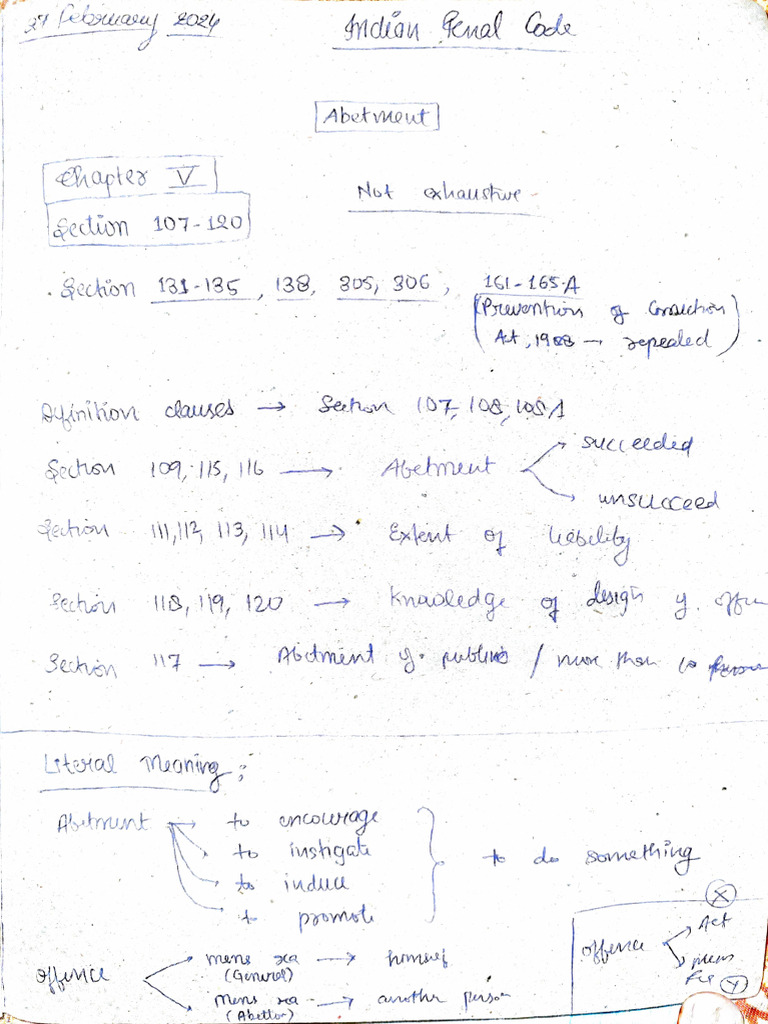 February 2024
Indian Penal Code
Abetment
Chapter V
Section 107-120
Not exhaustive
Section 131-135, 138, 305, 306, 161-165A
(Prevention of Corruction
Act, 1988 → repealed)
Definition clauses → Section 107, 108, 108A
Section 109, 115, 116 → Abetment
succeeded
unsucceed
Section 111, 112, 113, 114 → Extent of liability
Section 118, 119, 120 → Knowledge of design of offen
Section 117 → Abetment of public / more than 10
Literal Meaning:
Abetment → to encourage
to instigate
to induce
to promote
to do something
offence
mens rea → himself
(General)
mens rea → another person
(Abettor)
X
offence
Act
mens
rea Y